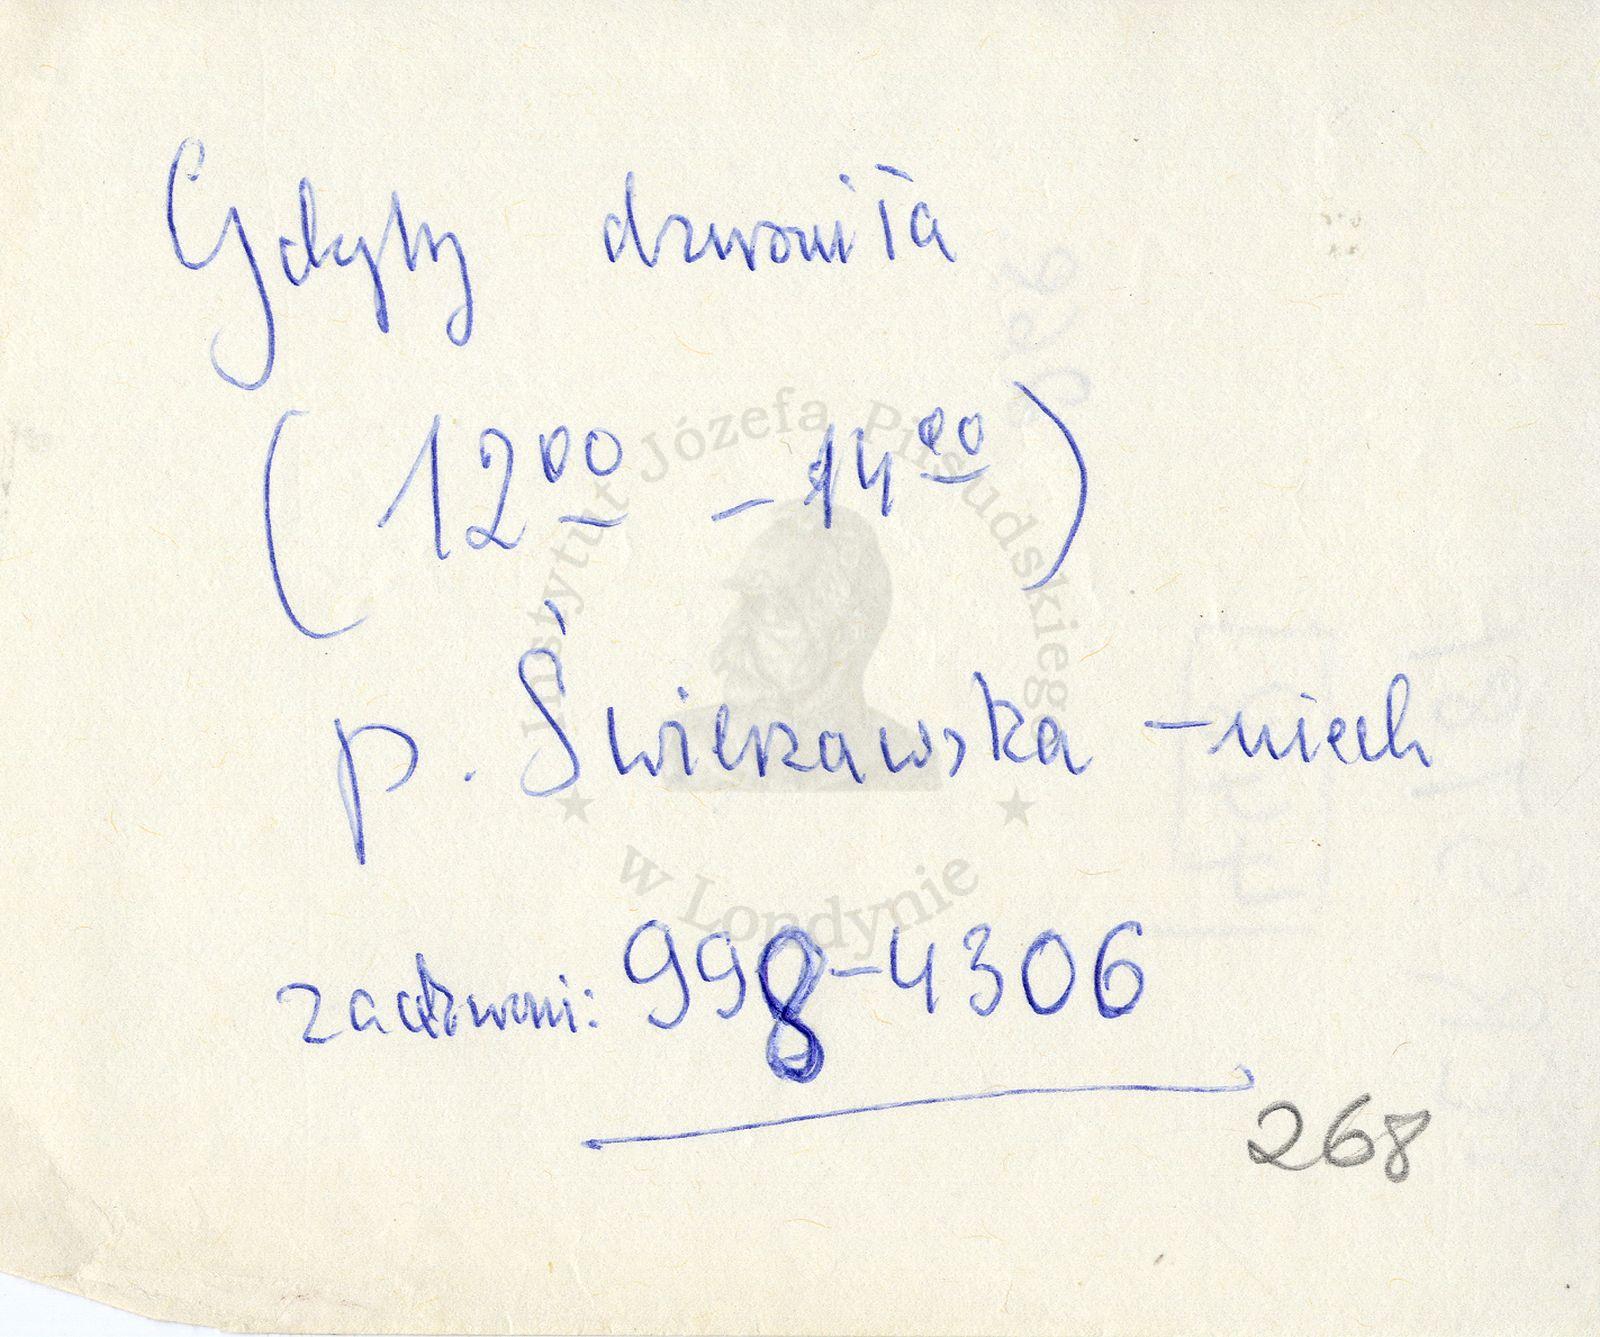 Gdyby dzwoniła
(12⁰⁰ – 14⁰⁰)
p. Świerzawska – niech
zadzwoni: 998-4306
268
Instytut Józefa Piłsudskiego
w Londynie